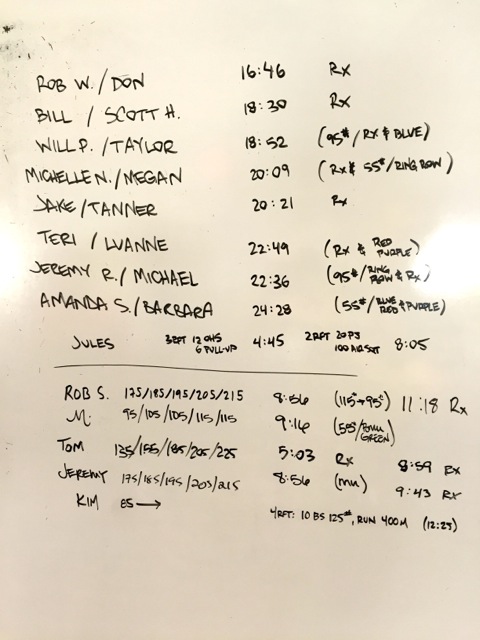 ROB W. / DON 16:46 Rx
BILL / SCOTT H. 18:30 Rx
WILL P. / TAYLOR 18:52 (95# / Rx & BLUE)
MICHELLE N. / MEGAN 20:09 (Rx & 55# / RING ROW)
JAKE / TANNER 20:21 Rx
TERI / LUANNE 22:49 (Rx & RED PURPLE)
JEREMY R. / MICHAEL 22:36 (95# / RING ROW & Rx)
AMANDA S. / BARBARA 24:28 (55# / BLUE RED & PURPLE)
JULES 3RFT 12 OHS 6 PULL-UP 4:45 2RFT 20 PS 100 AIR SQT 8:05
ROB S. 175/185/195/205/215 8:56 (115#→95#) 11:18 Rx
M. 95/105/105/115/115 9:16 (55#/ GREEN)
TOM 135/155/185/205/225 5:03 Rx 8:59 Rx
JEREMY 175/185/195/205/215 8:56 (MU) 9:43 Rx
KIM 85→ 4RFT: 10 BS 125#, RUN 400M (12:25)